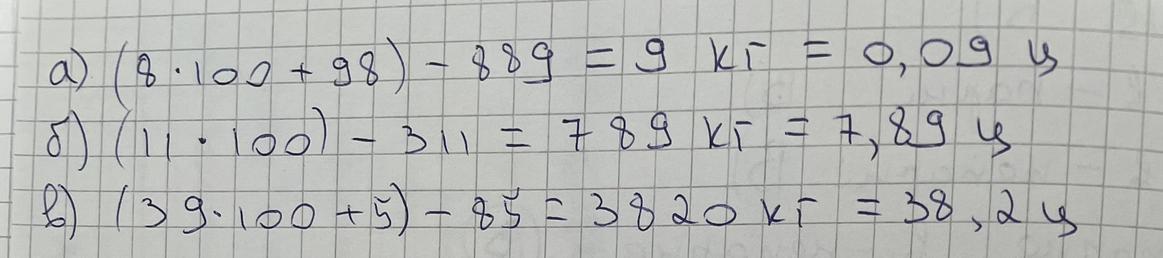 а) (8·100+98) - 889 = 9 кг = 0,09 ц
б) (11·100) - 311 = 789 кг = 7,89 ц
в) (39·100+5) - 85 = 3820 кг = 38,2 ц